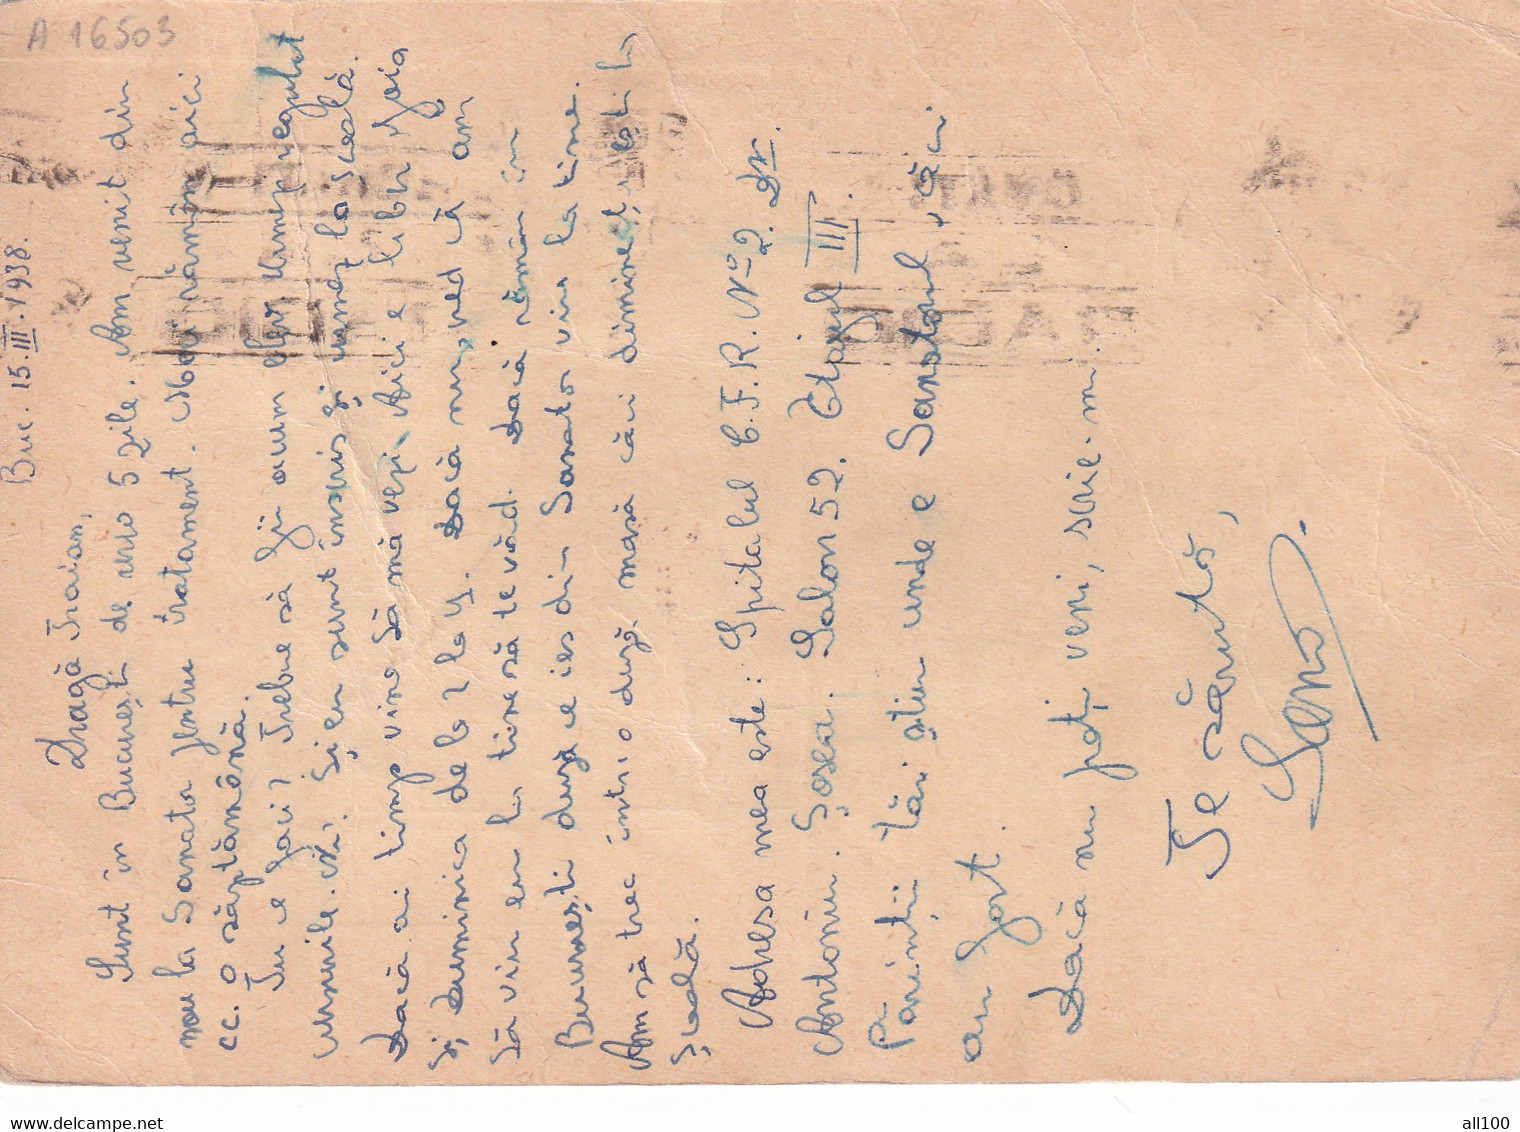 A 16503
Buc. 15.III.1938.
Dragă Traian,
Sunt în București de vreo 5 zile. Am venit din
nou la Sanator pentru tratament. Mai rămân aici
cc. o săptămână.
Tu ce faci? Trebue să fii acum elev
cursurile. Și eu sunt înscris și urmez la școală.
Dacă ai timp vino să mă vezi. Aici e liber Joia
și Duminica de la 2 la 4. Dacă nu, ved că am
să vin eu la tine să te văd. Dacă rămân în
București după ce ies din Sanator vin la tine.
Am să trec într-o după masă căci dimineața ești la
școală.
Adresa mea este: Spitalul C.F.R. No 2. Dr.
Antoniu. Șosea. Salon 52. Etajul III.
Părinții tăi știu unde e Sanatorul, căci
au fost.
Dacă nu poți veni, scrie-mi.
Te sărută,
all100